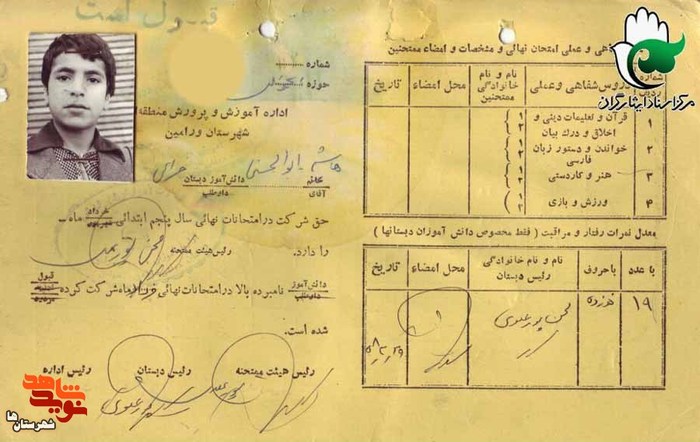 قبول است
شماره
حوزه
اداره آموزش و پرورش منطقه
شهرستان ورامین
هاشم ابوالحسنی
خانم آقای
دانش‌آموز دبستان
داوطلب
حق شرکت در امتحانات نهائی سال پنجم ابتدائی خرداد ماه
شهریور
را دارد.
رئیس هیئت ممتحنه
دانش‌آموز نامبرده بالا در امتحانات نهائی خرداد ماه شرکت کرده
داوطلب
قبول
مردود
شده است.
رئیس هیئت ممتحنه
رئیس دبستان
رئیس اداره
نوید شاهد
شهرستان‌ها
شفاهی و عملی امتحان نهائی و مشخصات و امضاء ممتحنین
شماره ردیف
دروس شفاهی و عملی
نام و نام خانوادگی ممتحنین
محل امضاء
تاریخ
۱ قرآن و تعلیمات دینی و اخلاق و درک بیان
۲ خواندن و دستور زبان فارسی
۳ هنر و کاردستی
۴ ورزش و بازی
معدل نمرات رفتار و مراقبت ( فقط مخصوص دانش آموزان دبستانها )
با عدد
با حروف
نام و نام خانوادگی رئیس دبستان
محل امضاء
تاریخ
۱۹
نوزده
محسن پورعلوی
مرکز اسناد ایثارگران